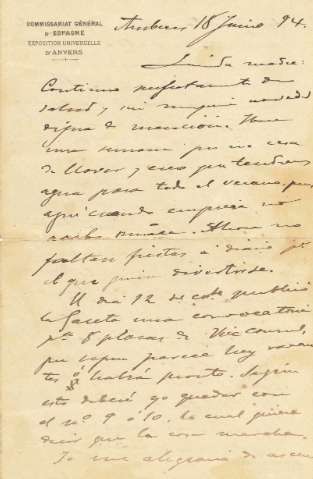 COMMISSARIAT GÉNÉRAL
D'ESPAGNE
EXPOSITION UNIVERSELLE
D'ANVERS
Amberes 18 Junio 94.
Linda madre:
Continuo perfectamente de
salud y sin ninguna novedad
digna de mención. Hace
una semana que no cesa
de llover y creo que tendremos
agua para todo el verano, pues
aquí cuando empieza no
acaba nunca. Ahora no
faltan fiestas a diario
el que quiera divertirse.
El dia 12 de este publicó
la Gaceta una convocatoria
pa 8 plazas de Vice Consul,
que segun parece hay vacan
tes o habrá pronto. Según
esto debería yo quedar con
el nº 9 ó 10. lo cual quiere
decir que la cosa marcha.